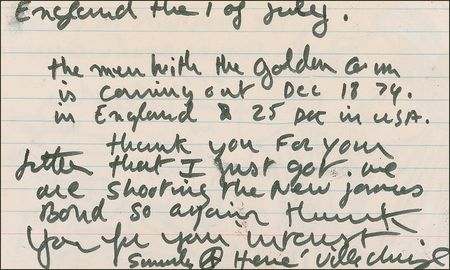 England the 1 of July.
the men with the golden Gun
is coming out Dec 18 74.
in England & 25 Dec in USA.
thank you For your
letter that I just got. we
are shooting the New James
Bond so again thank
you for your interest
Sincerely Hervé Villechaize